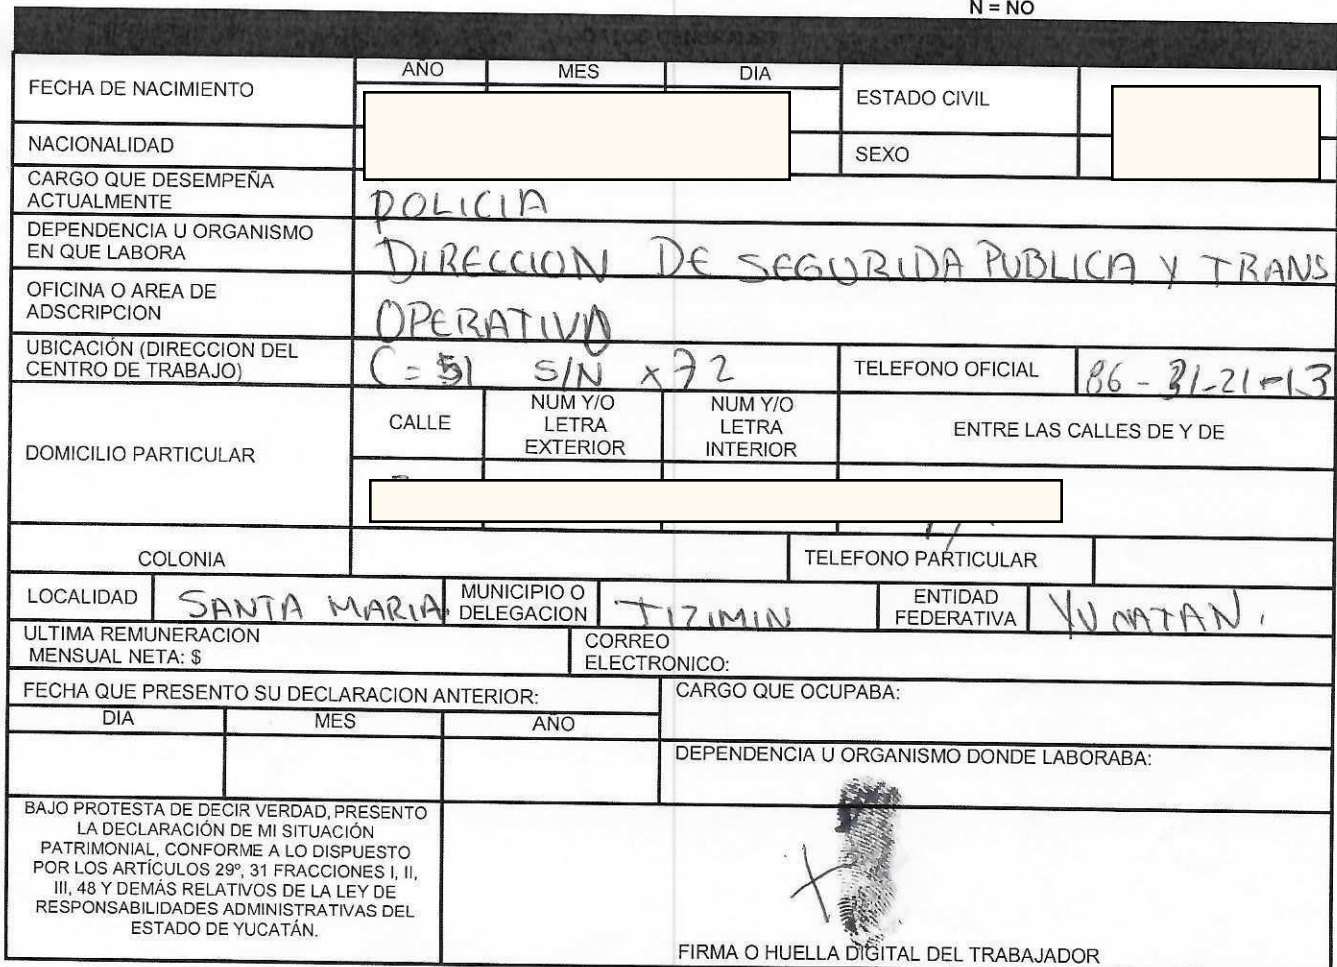 N = NO
DATOS GENERALES
FECHA DE NACIMIENTO
AÑO MES DIA
ESTADO CIVIL
NACIONALIDAD
SEXO
CARGO QUE DESEMPEÑA
ACTUALMENTE
POLICIA
DEPENDENCIA U ORGANISMO
EN QUE LABORA
DIRECCION DE SEGURIDA PUBLICA Y TRANS
OFICINA O AREA DE
ADSCRIPCION
OPERATIVO
UBICACIÓN (DIRECCION DEL
CENTRO DE TRABAJO)
C = 51 S/N x 72
TELEFONO OFICIAL
86-31-21-13
DOMICILIO PARTICULAR
CALLE
NUM Y/O
LETRA
EXTERIOR
NUM Y/O
LETRA
INTERIOR
ENTRE LAS CALLES DE Y DE
COLONIA
TELEFONO PARTICULAR
LOCALIDAD
SANTA MARIA.
MUNICIPIO O
DELEGACION
TIZIMIN
ENTIDAD
FEDERATIVA
YUCATAN.
ULTIMA REMUNERACION
MENSUAL NETA: $
CORREO
ELECTRONICO:
FECHA QUE PRESENTO SU DECLARACION ANTERIOR:
DIA MES AÑO
CARGO QUE OCUPABA:
DEPENDENCIA U ORGANISMO DONDE LABORABA:
BAJO PROTESTA DE DECIR VERDAD, PRESENTO
LA DECLARACIÓN DE MI SITUACIÓN
PATRIMONIAL, CONFORME A LO DISPUESTO
POR LOS ARTÍCULOS 29º, 31 FRACCIONES I, II,
III, 48 Y DEMÁS RELATIVOS DE LA LEY DE
RESPONSABILIDADES ADMINISTRATIVAS DEL
ESTADO DE YUCATÁN.
X
FIRMA O HUELLA DIGITAL DEL TRABAJADOR